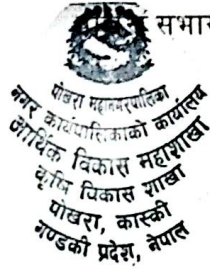 सभा
पोखरा महानगरपालिका
नगर कार्यपालिकाको कार्यालय
आर्थिक विकास महाशाखा
कृषि विकास शाखा
पोखरा, कास्की
गण्डकी प्रदेश, नेपाल